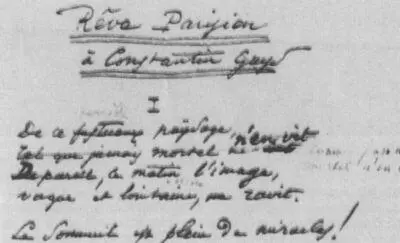 Rêve Parisien
à Constantin Guys
I
De ce fastueux paysage,
Tel que jamais mortel n'en vit
De pareil, ce matin l'image,
vague et lointaine, me ravit.
Le Sommeil est plein de miracles!